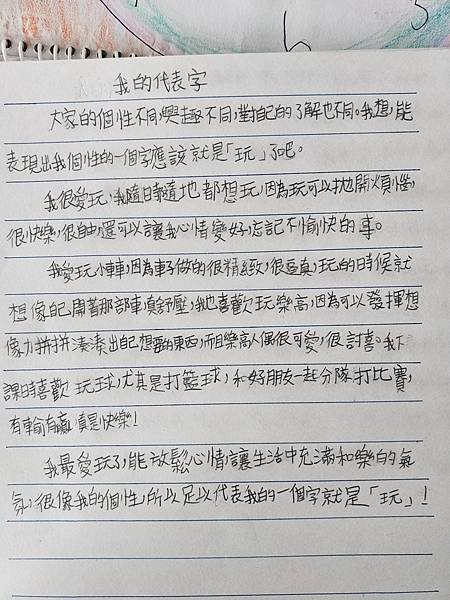 我的代表字
大家的個性不同,興趣不同,對自己的了解也不同。我想,能
表現出我個性的一個字應該就是「玩」了吧。
我很愛玩,我隨時隨地都想玩,因為玩可以拋開煩惱,
很快樂,很自由,還可以讓我心情變好,忘記不愉快的事。
我愛玩小車車,因為車子做的很精緻,很逼真,玩的時候就
想像自己開著那部車,真舒壓,我也喜歡玩樂高,因為可以發揮想
像力拼拼湊湊出自己想要的東西,而且樂高人偶很可愛,很討喜。我下
課時喜歡玩球,尤其是打籃球,和好朋友一起分隊打比賽,
有輸有贏真是快樂!
我最愛玩了,能放鬆心情,讓生活中充滿和樂的氣
氛,很像我的個性,所以足以代表我的一個字就是「玩」!